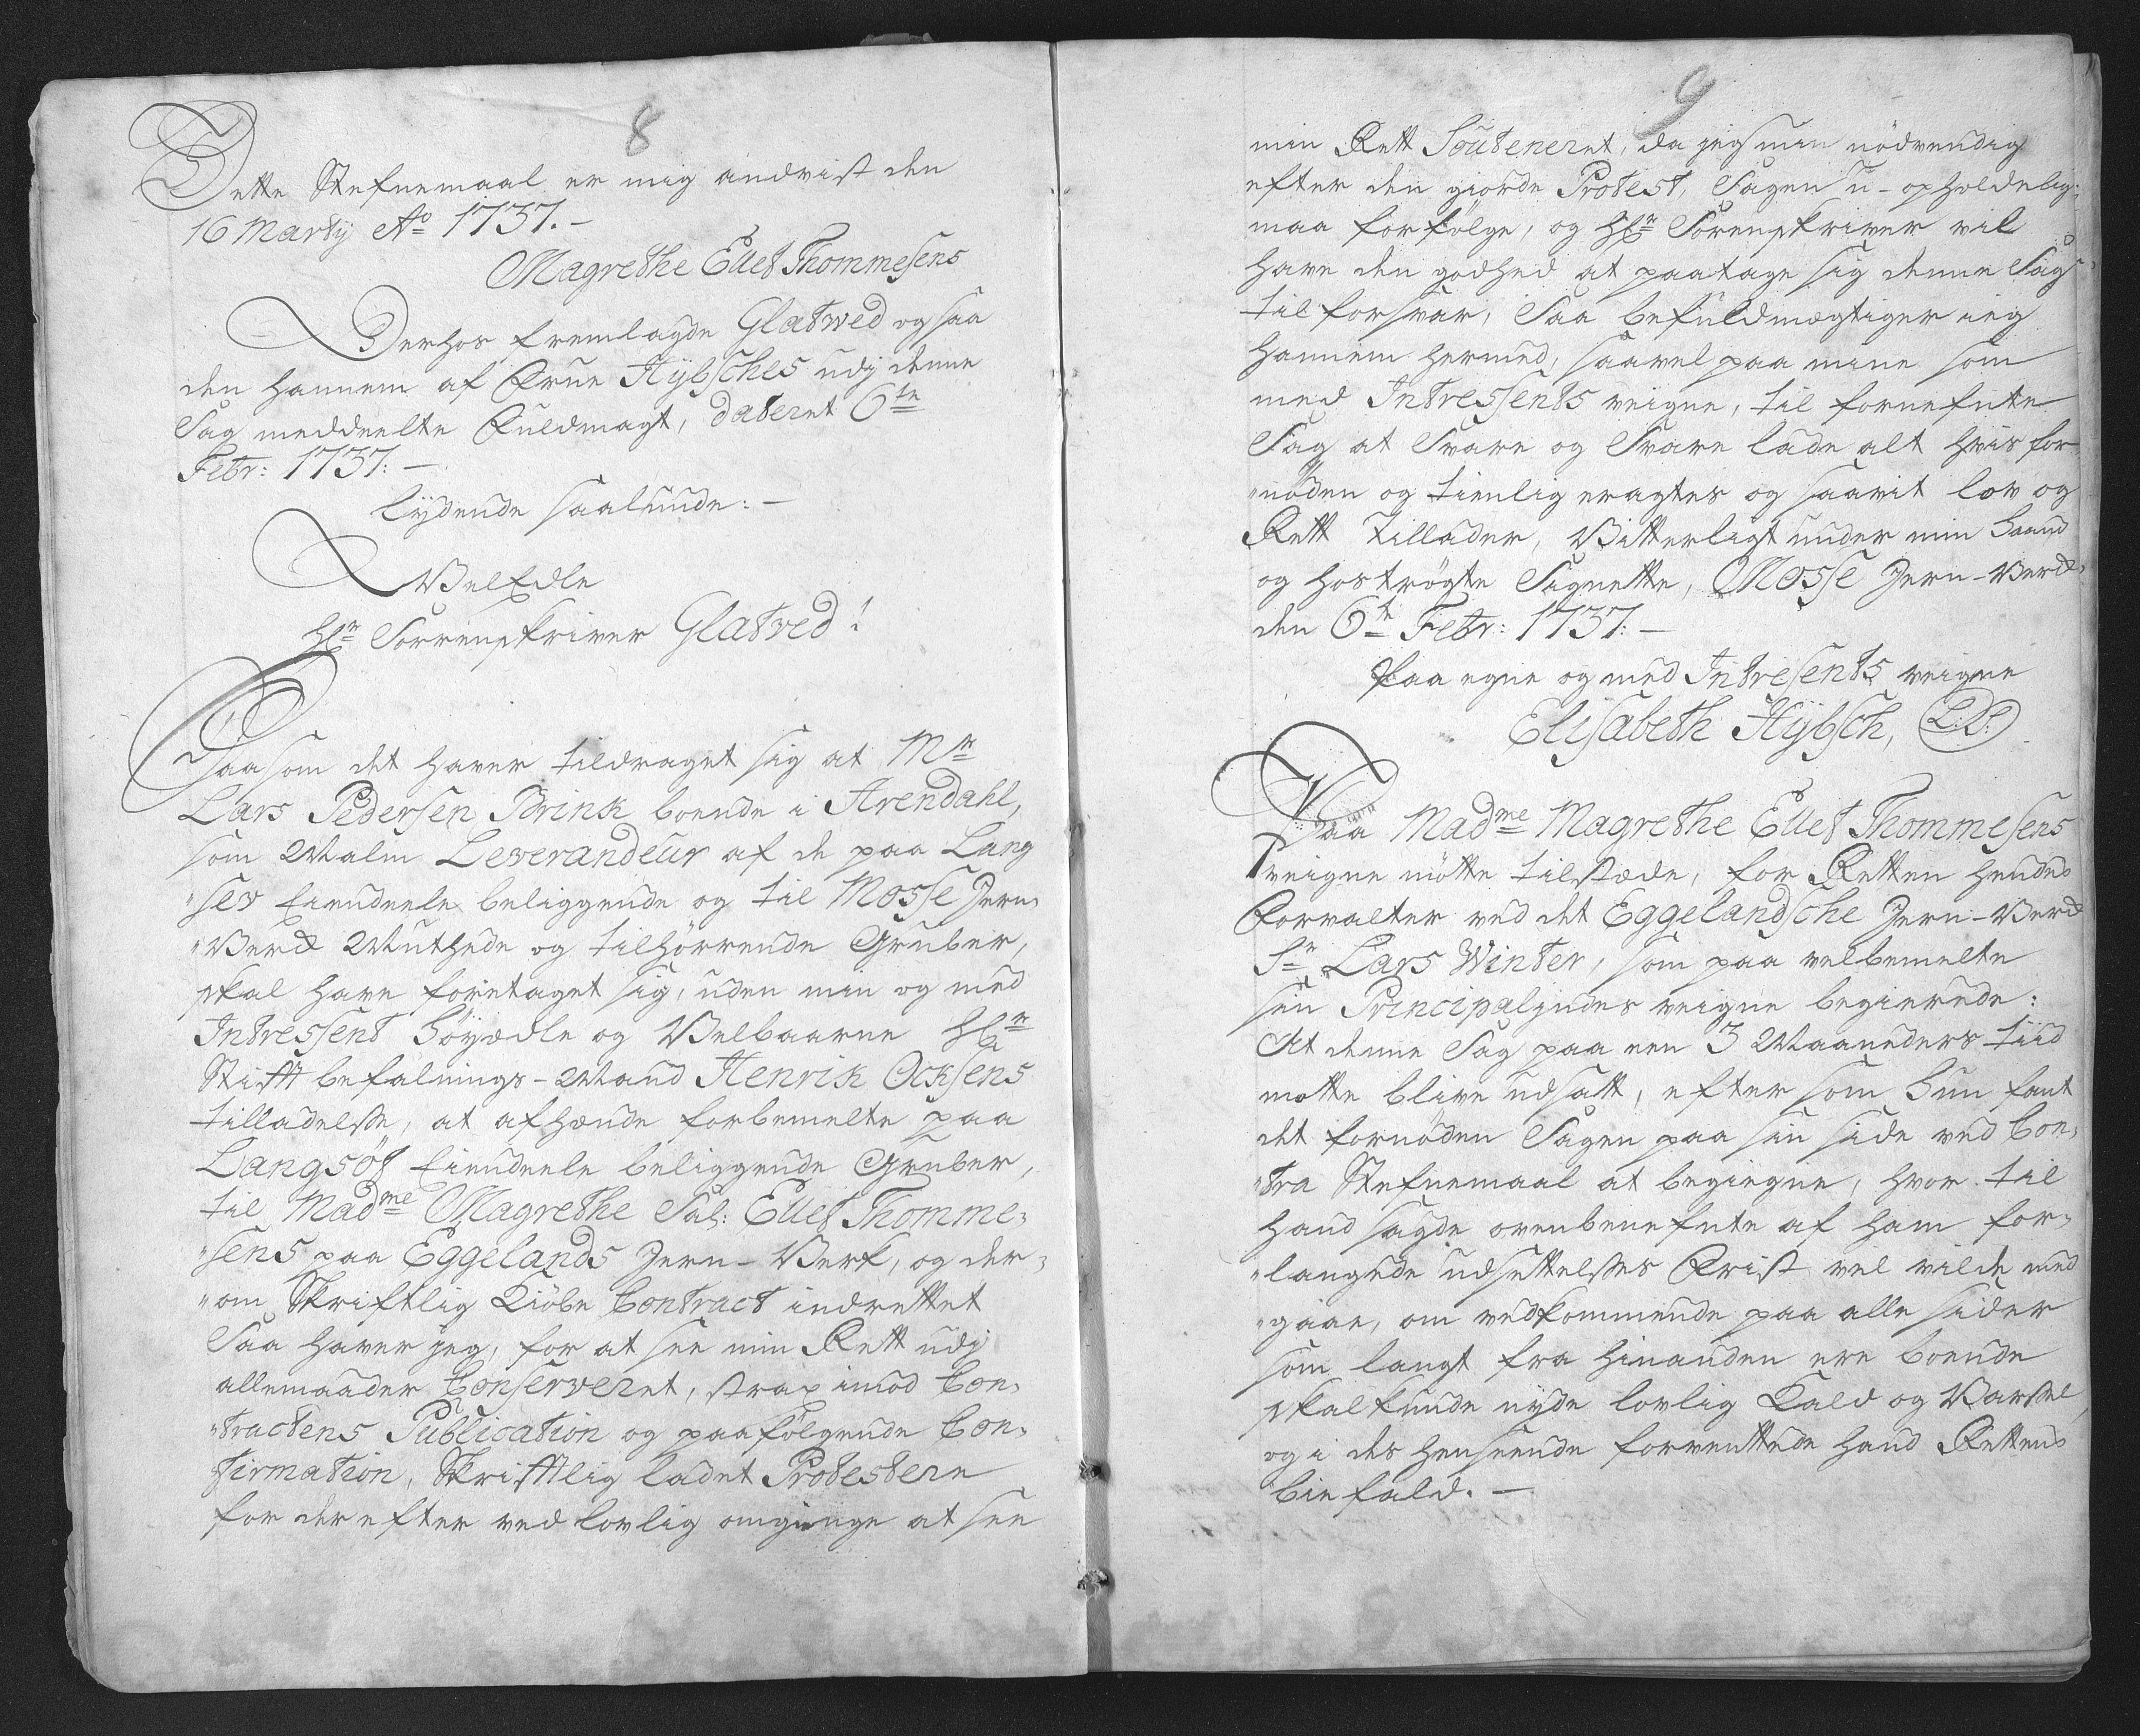 8
Dette Stefnemaal er mig andvist den
16 Martij Ao 1737.-
Magrethe Ellef Thommesens
Derhos fremlagde Glatwed og saa
den hannem af Frue Hÿbsches udj denne
Sag meddeelte Fuldmagt, dateret 6te
Febr: 1737:-
lÿdende saalunde:-
VelEdle
Hr Sorrenskriver Glatved!
Saasom det haver tildraget sig at Mr
Lars Pedersen Brink boende i Arendahl,
som Malm Leverandeur af de paa Lang
"sev Eiendeele beliggende og til Mosse Jern-
"Verck Muthede og tilhörrende Gruber,
skal have foretaget sig, uden min og med
Intressent Höyædle og Velbaarne Hr
Stifft befalnings-Mand Henrik Ocksens
tilladelsse, at afhænde forbemelte paa
Langsöf Eiendeele beliggende Gruber,
til Madme Magrethe Sal: Ellef Thomme-
"sens paa Eggelands Jern-Verk, og der-
"om Skriftlig Kiöbe Contract indrettet
Saa haver jeg, for at see min Rett udj
allemaader Conserveret, strax imod Con-
"tractens Publication og paafölgende Con-
firmation, Skrifftlig ladet Protestere
for derefter ved lovlig omgange at see
9
min Rett Souteneret, da jeg nu nödvendig
efter den giorde Protest, Sagen u-opholdelig:
maa forfölge, og Hr Sorenskriver vil
have den godhed at paatage sig denne Sag
til forsvar, Saa befuldmægtiger ieg
hannem hermed, saavel paa mine som
med Intressents veigne, til fornefnte
Sag at Svare og Svare lade alt hvis for
"nöden og tienlig eragtes og saavit lov og
Rett tillader, Vitterligt under min Haand
og hoströgte Signette, Mosse Jern-Verck,
den 6te Febr: 1737:-
Paa egne og med Intresents veigne
Elisabeth Hÿbsch, L.S.
Paa Madme Magrethe Ellef Thommesens
veigne mötte tilstæde, for Retten hendes
Forvalter ved det Eggelandsche Jern-Verck
Sr Lars Winter, som paa velbemelte
sin Principalindes veigne begierede:
At denne Sag paa een 3 Maaneders tiid
motte blive udsatt, efter som Hun fant
det fornöden Sagen paa sin side ved Con-
"tra Stefnemaal at begiegne, hvor til
hand sagde ovenbenefnte af ham for-
"langede udsettelsses Frist vel vilde med
"gaae, om vedkommende paa alle sider
som langt fra hinanden ere boende
skal kunde nÿde lovlig Kald og Varssel,
og i des henseende forventtede hand Rettens
biefald.-